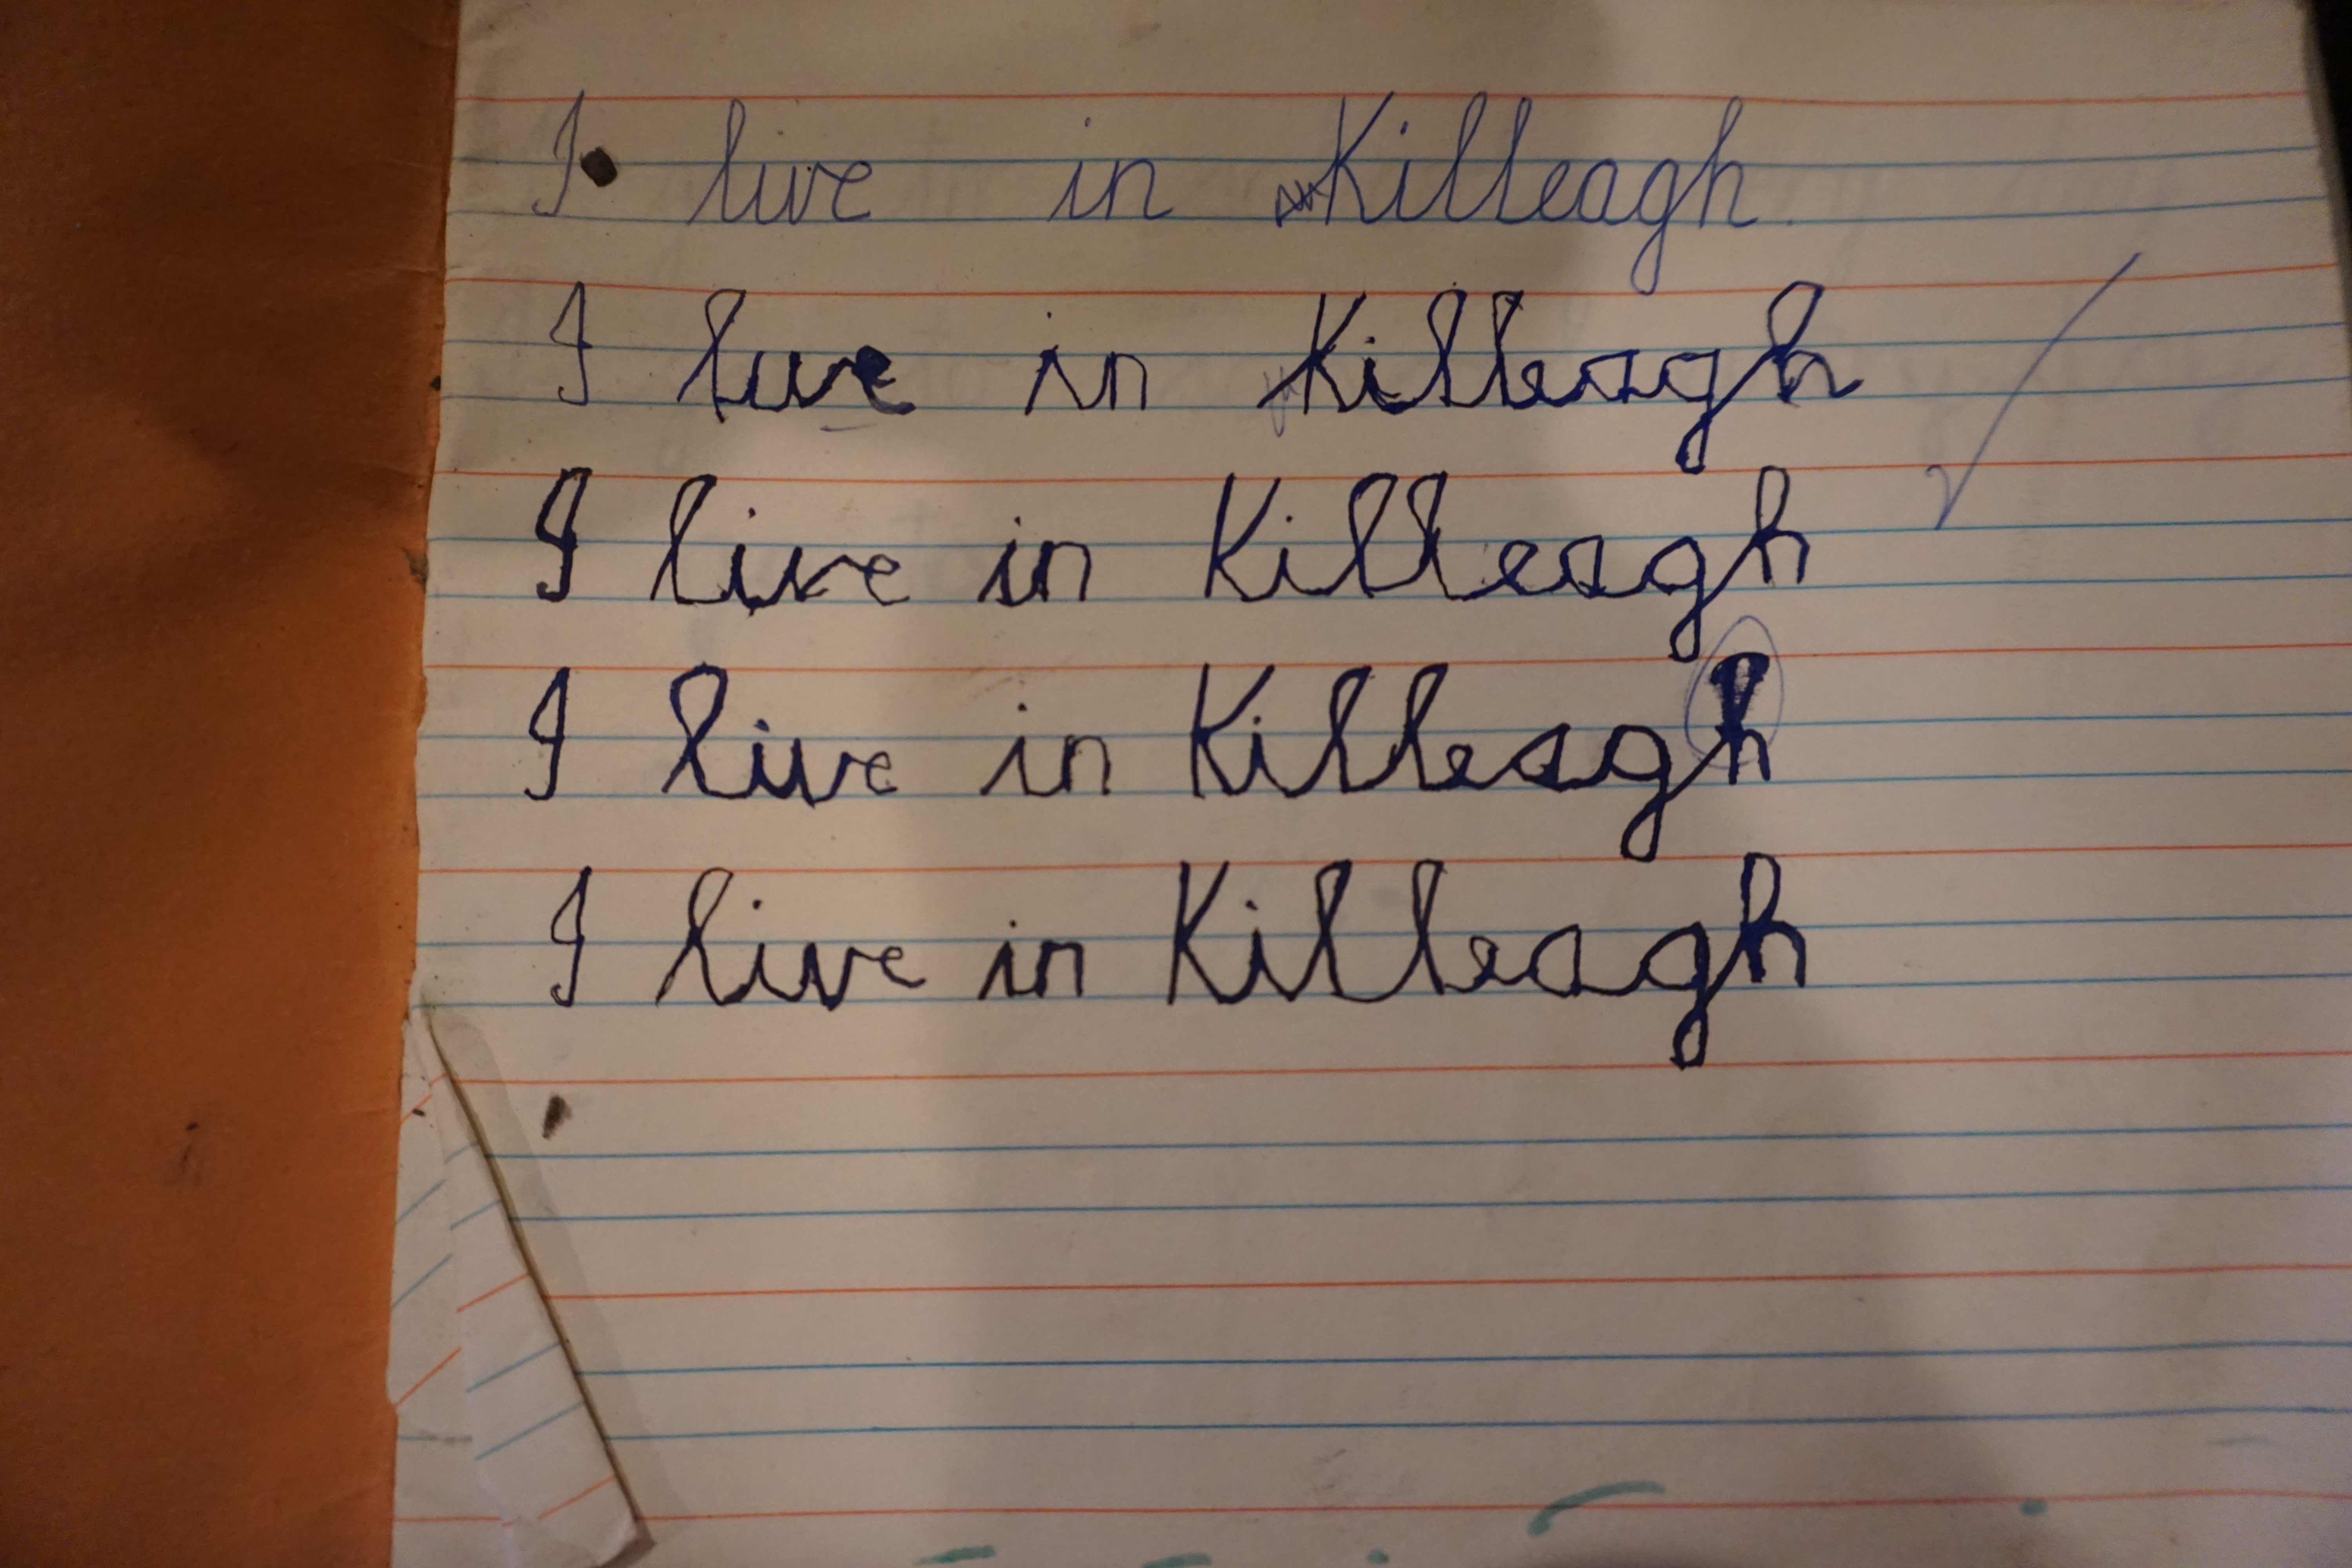 I live in Killeagh.
I live in Killeagh
I live in Killeagh
I live in Killeagh
I live in Killeagh